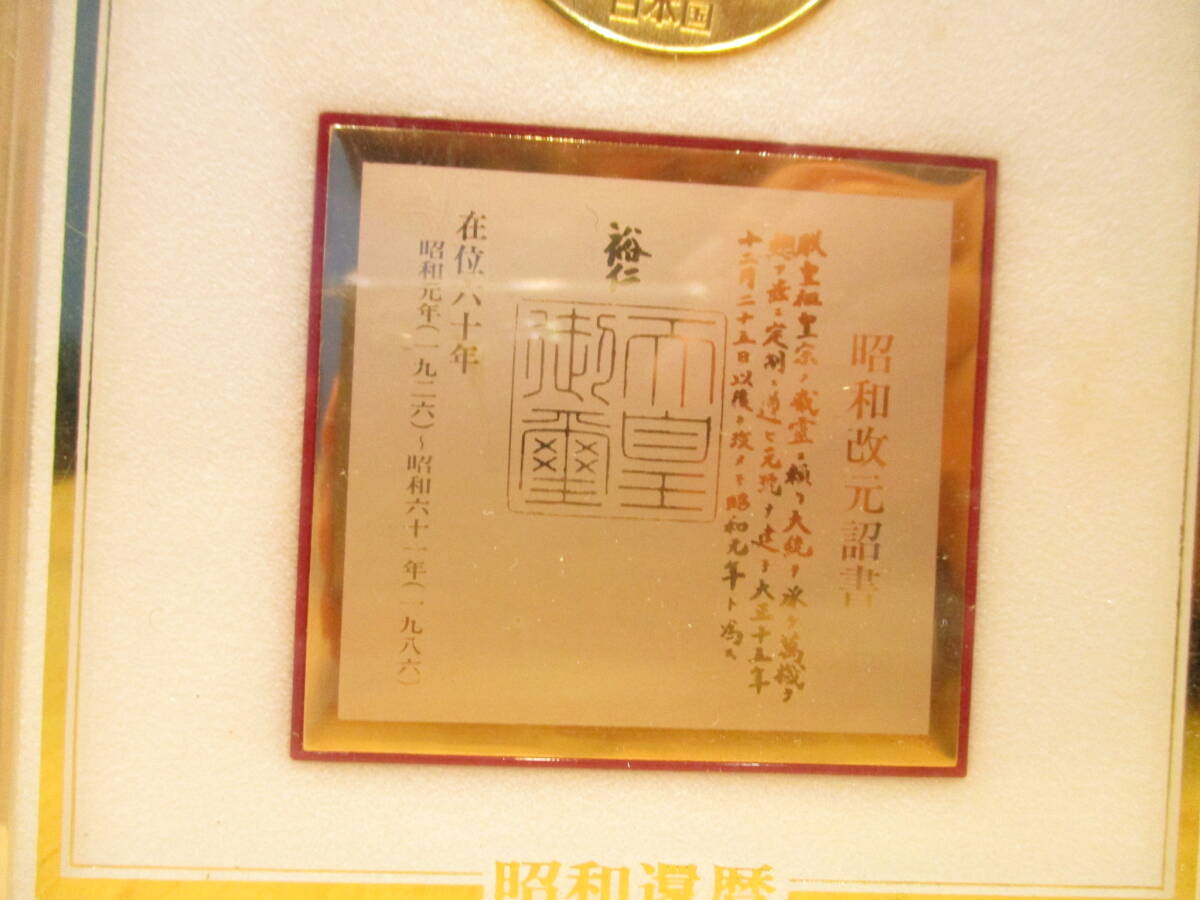 日本国
昭和改元詔書
朕皇祖皇宗ノ威霊ニ頼リ大統ヲ承ケ萬機ヲ
總フ茲ニ定制ニ遵ヒ元號ヲ建テ大正十五年
十二月二十五日以後ヲ改メテ昭和元年ト為ス
裕仁
天皇
御璽
在位六十年
昭和元年(一九二六)~昭和六十一年(一九八六)
昭和還暦